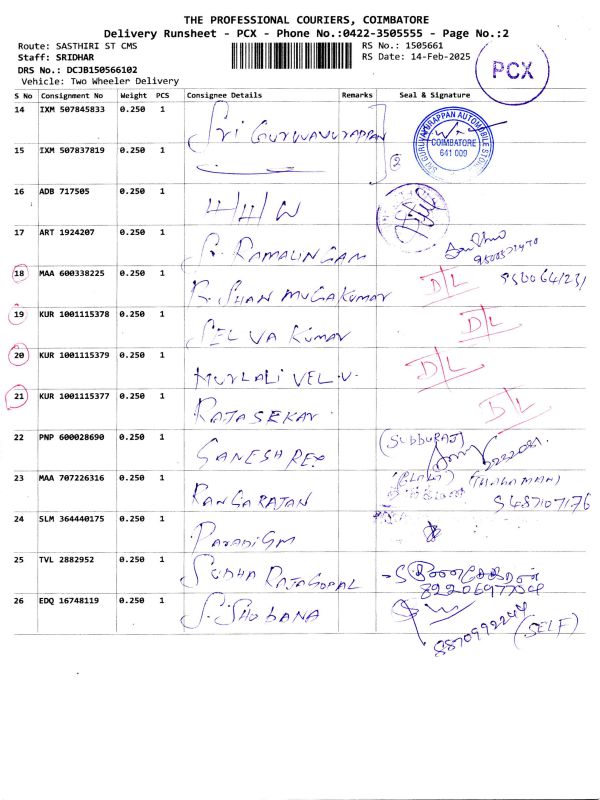 THE PROFESSIONAL COURIERS, COIMBATORE
Delivery Runsheet - PCX - Phone No.:0422-3505555 - Page No.:2
Route: SASTHIRI ST CMS
RS No.: 1505661
Staff: SRIDHAR
RS Date: 14-Feb-2025
DRS No.: DCJB150566102
Vehicle: Two Wheeler Delivery
PCX
S No Consignment No Weight PCS Consignee Details Remarks Seal & Signature
14 IXM 507845833 0.250 1 Sri Guruvayurappan
SRI GURUVAYURAPPAN AUTOMOBILE STORES
COIMBATORE
641 009
15 IXM 507837819 0.250 1 2
16 ADB 717505 0.250 1
17 ART 1924207 0.250 1 S. RAMALINGAM
18 MAA 600338225 0.250 1 R. SHANMUGAKUMAR D/L 9500641231
19 KUR 1001115378 0.250 1 SELVA KUMAR D/L
20 KUR 1001115379 0.250 1 MURLALI VEL.V. D/L
21 KUR 1001115377 0.250 1 RAJASEKAR D/L
22 PNP 600028690 0.250 1 GANESH REX (SUBBURAJ)
23 MAA 707226316 0.250 1 RANGARAJAN
24 SLM 364440175 0.250 1 Paradigm
25 TVL 2882952 0.250 1 SUDHA RAJAGOPAL
8220697704
26 EDQ 16748119 0.250 1 S. SHOBANA
8870992244 (SELF)